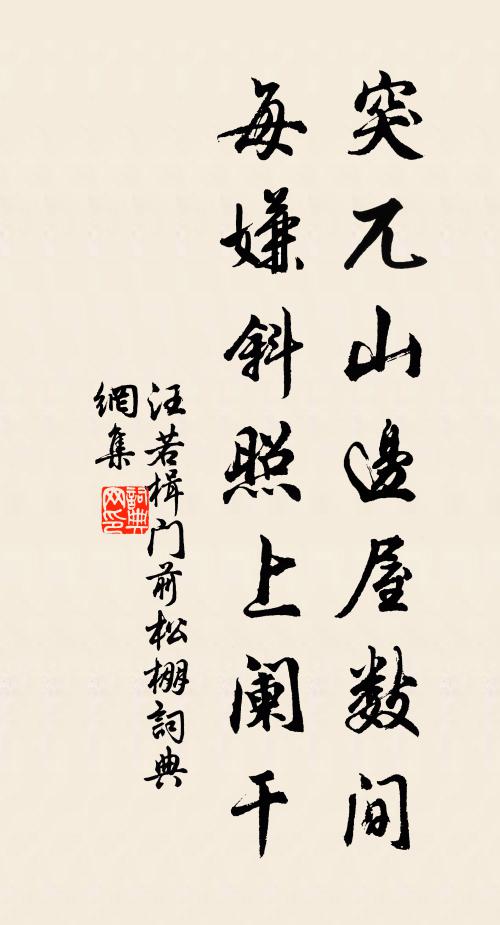 突兀山邊屋数间
每嫌斜照上阑干
汪若楫门前松棚詞典
網集
詞典
网印